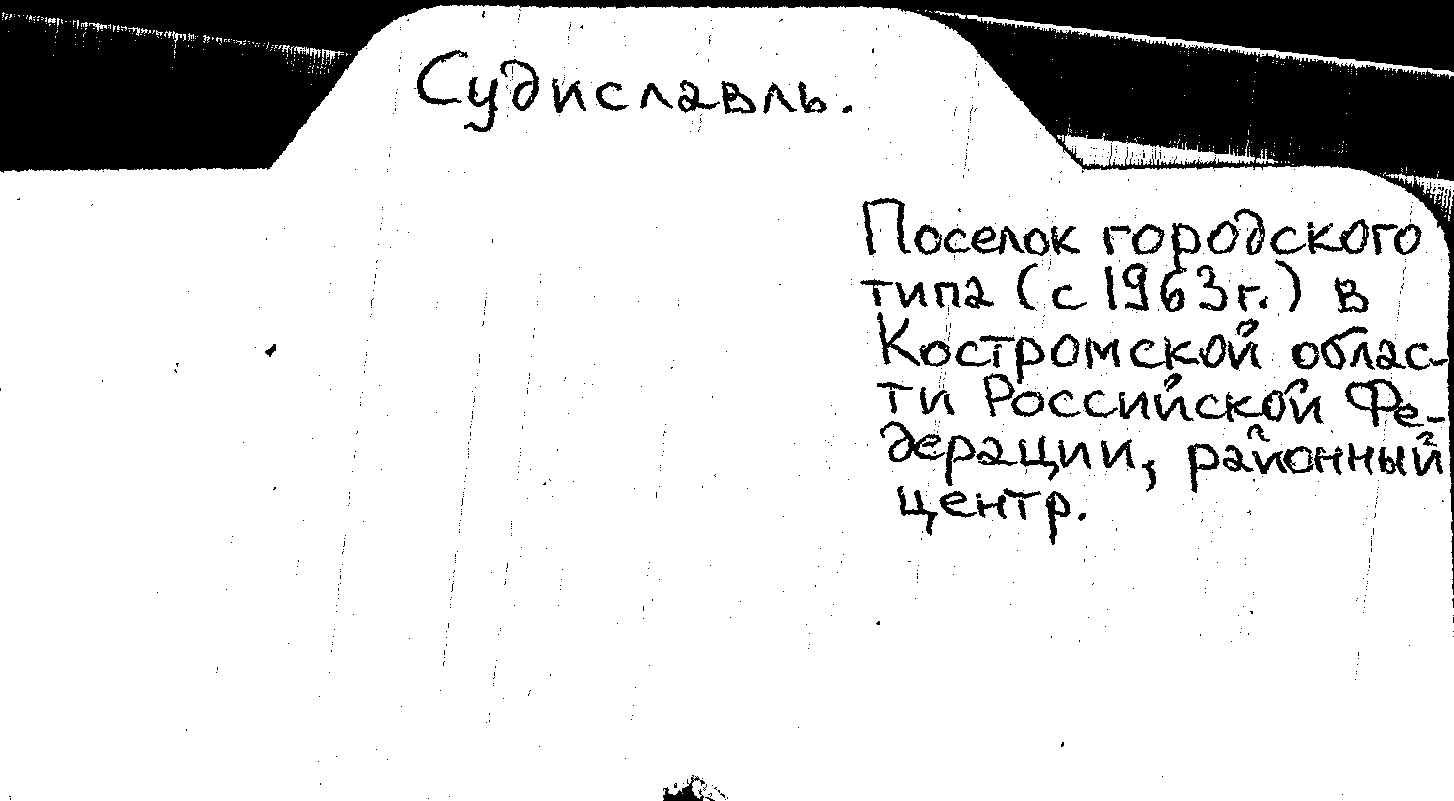 Судиславль.
Поселок городского
типа (с 1963г.) в
Костромской облас-
ти Российской Фе-
дерации, районный
центр.